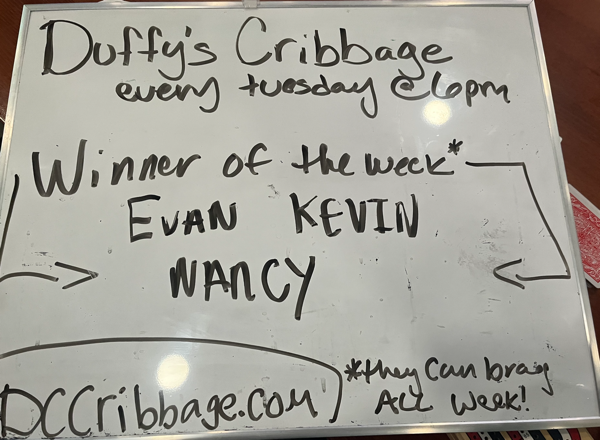 Duffy's Cribbage
every tuesday @6pm
Winner of the week*
EVAN KEVIN
NANCY
DCCribbage.com
*they can brag
ALL Week!